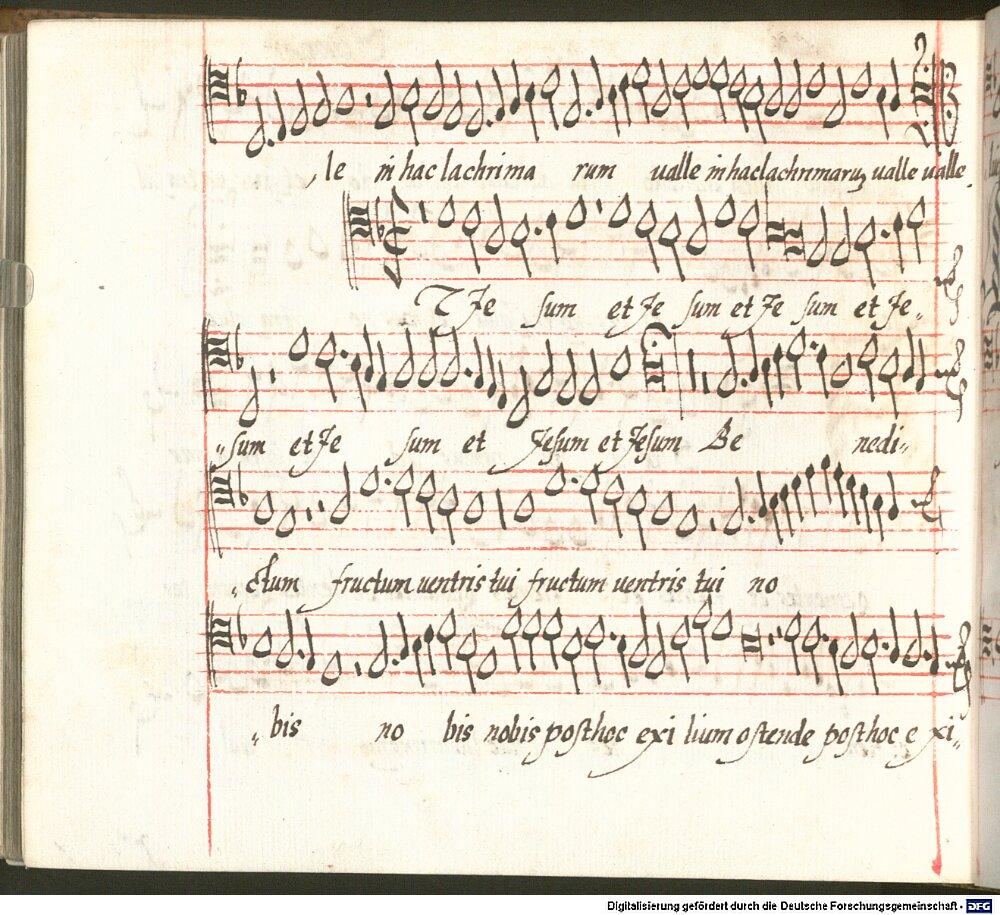 le in hac lachrima rum ualle in hac lachrimarum ualle ualle
Et Je sum et Je sum et Je sum et Je„
„sum et Je sum et Jesum et Jesum Be nedi„
„ctum fructum uentris tui fructum uentris tui no
„bis no bis nobis posthoc exi lium ostende posthoc e xi„
Digitalisierung gefördert durch die Deutsche Forschungsgemeinschaft - DFG